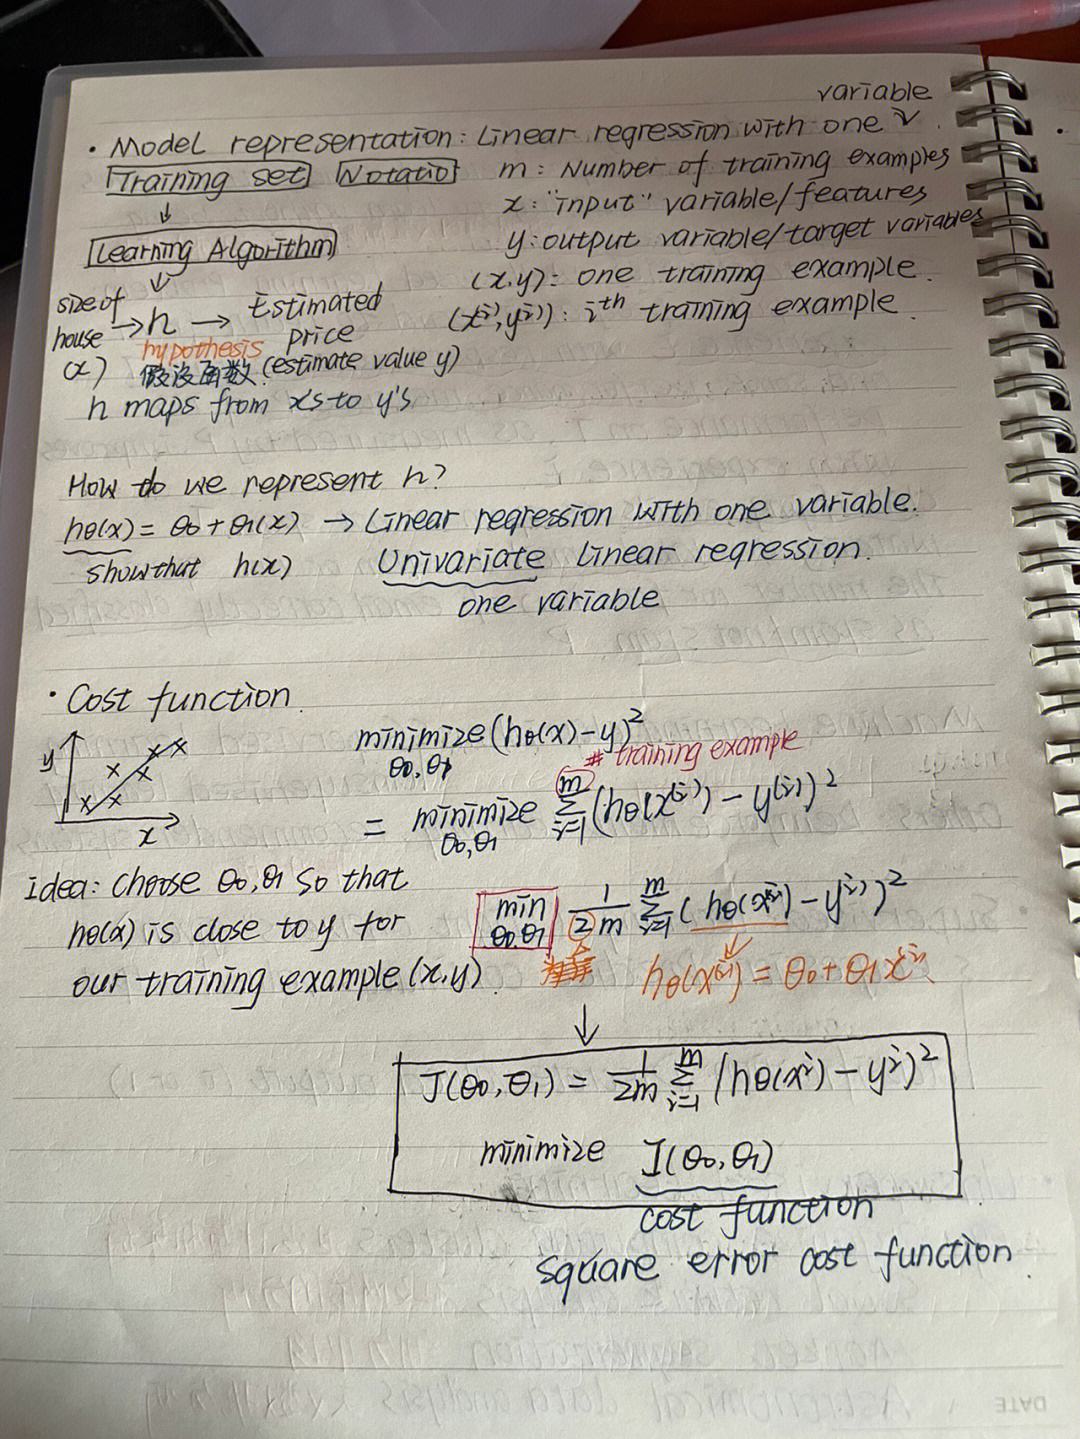 variable
· Model representation: Linear regression with one ν.
Training set Notatio m: Number of training examples
x: "input" variable/features
↓
Learning Algorithm y: output variable/target variables
↓ (x,y): one training example.
size of house (x) → h → Estimated price (x⁽ⁱ⁾, y⁽ⁱ⁾): iᵗʰ training example.
hypothesis
假设函数. (estimate value y)
h maps from x's to y's
How do we represent h?
hθ(x) = θ0 + θ1(x) → Linear regression with one variable.
show that h(x) Univariate linear regression.
one variable
· Cost function.
y
x
minimize (hθ(x) - y)²
θ0, θ1
# training example
= minimize Σ (hθ(x⁽ⁱ⁾) - y⁽ⁱ⁾)²
θ0, θ1 i=1 m
idea: choose θ0, θ1 so that
hθ(x) is close to y for
our training example (x,y).
min 1/2m Σ (hθ(x⁽ⁱ⁾) - y⁽ⁱ⁾)²
θ0, θ1 i=1 m
hθ(x⁽ⁱ⁾) = θ0 + θ1x⁽ⁱ⁾
↓
J(θ0, θ1) = 1/2m Σ (hθ(xⁱ) - yⁱ)²
i=1 m
minimize J(θ0, θ1)
cost function
square error cost function.
DATE